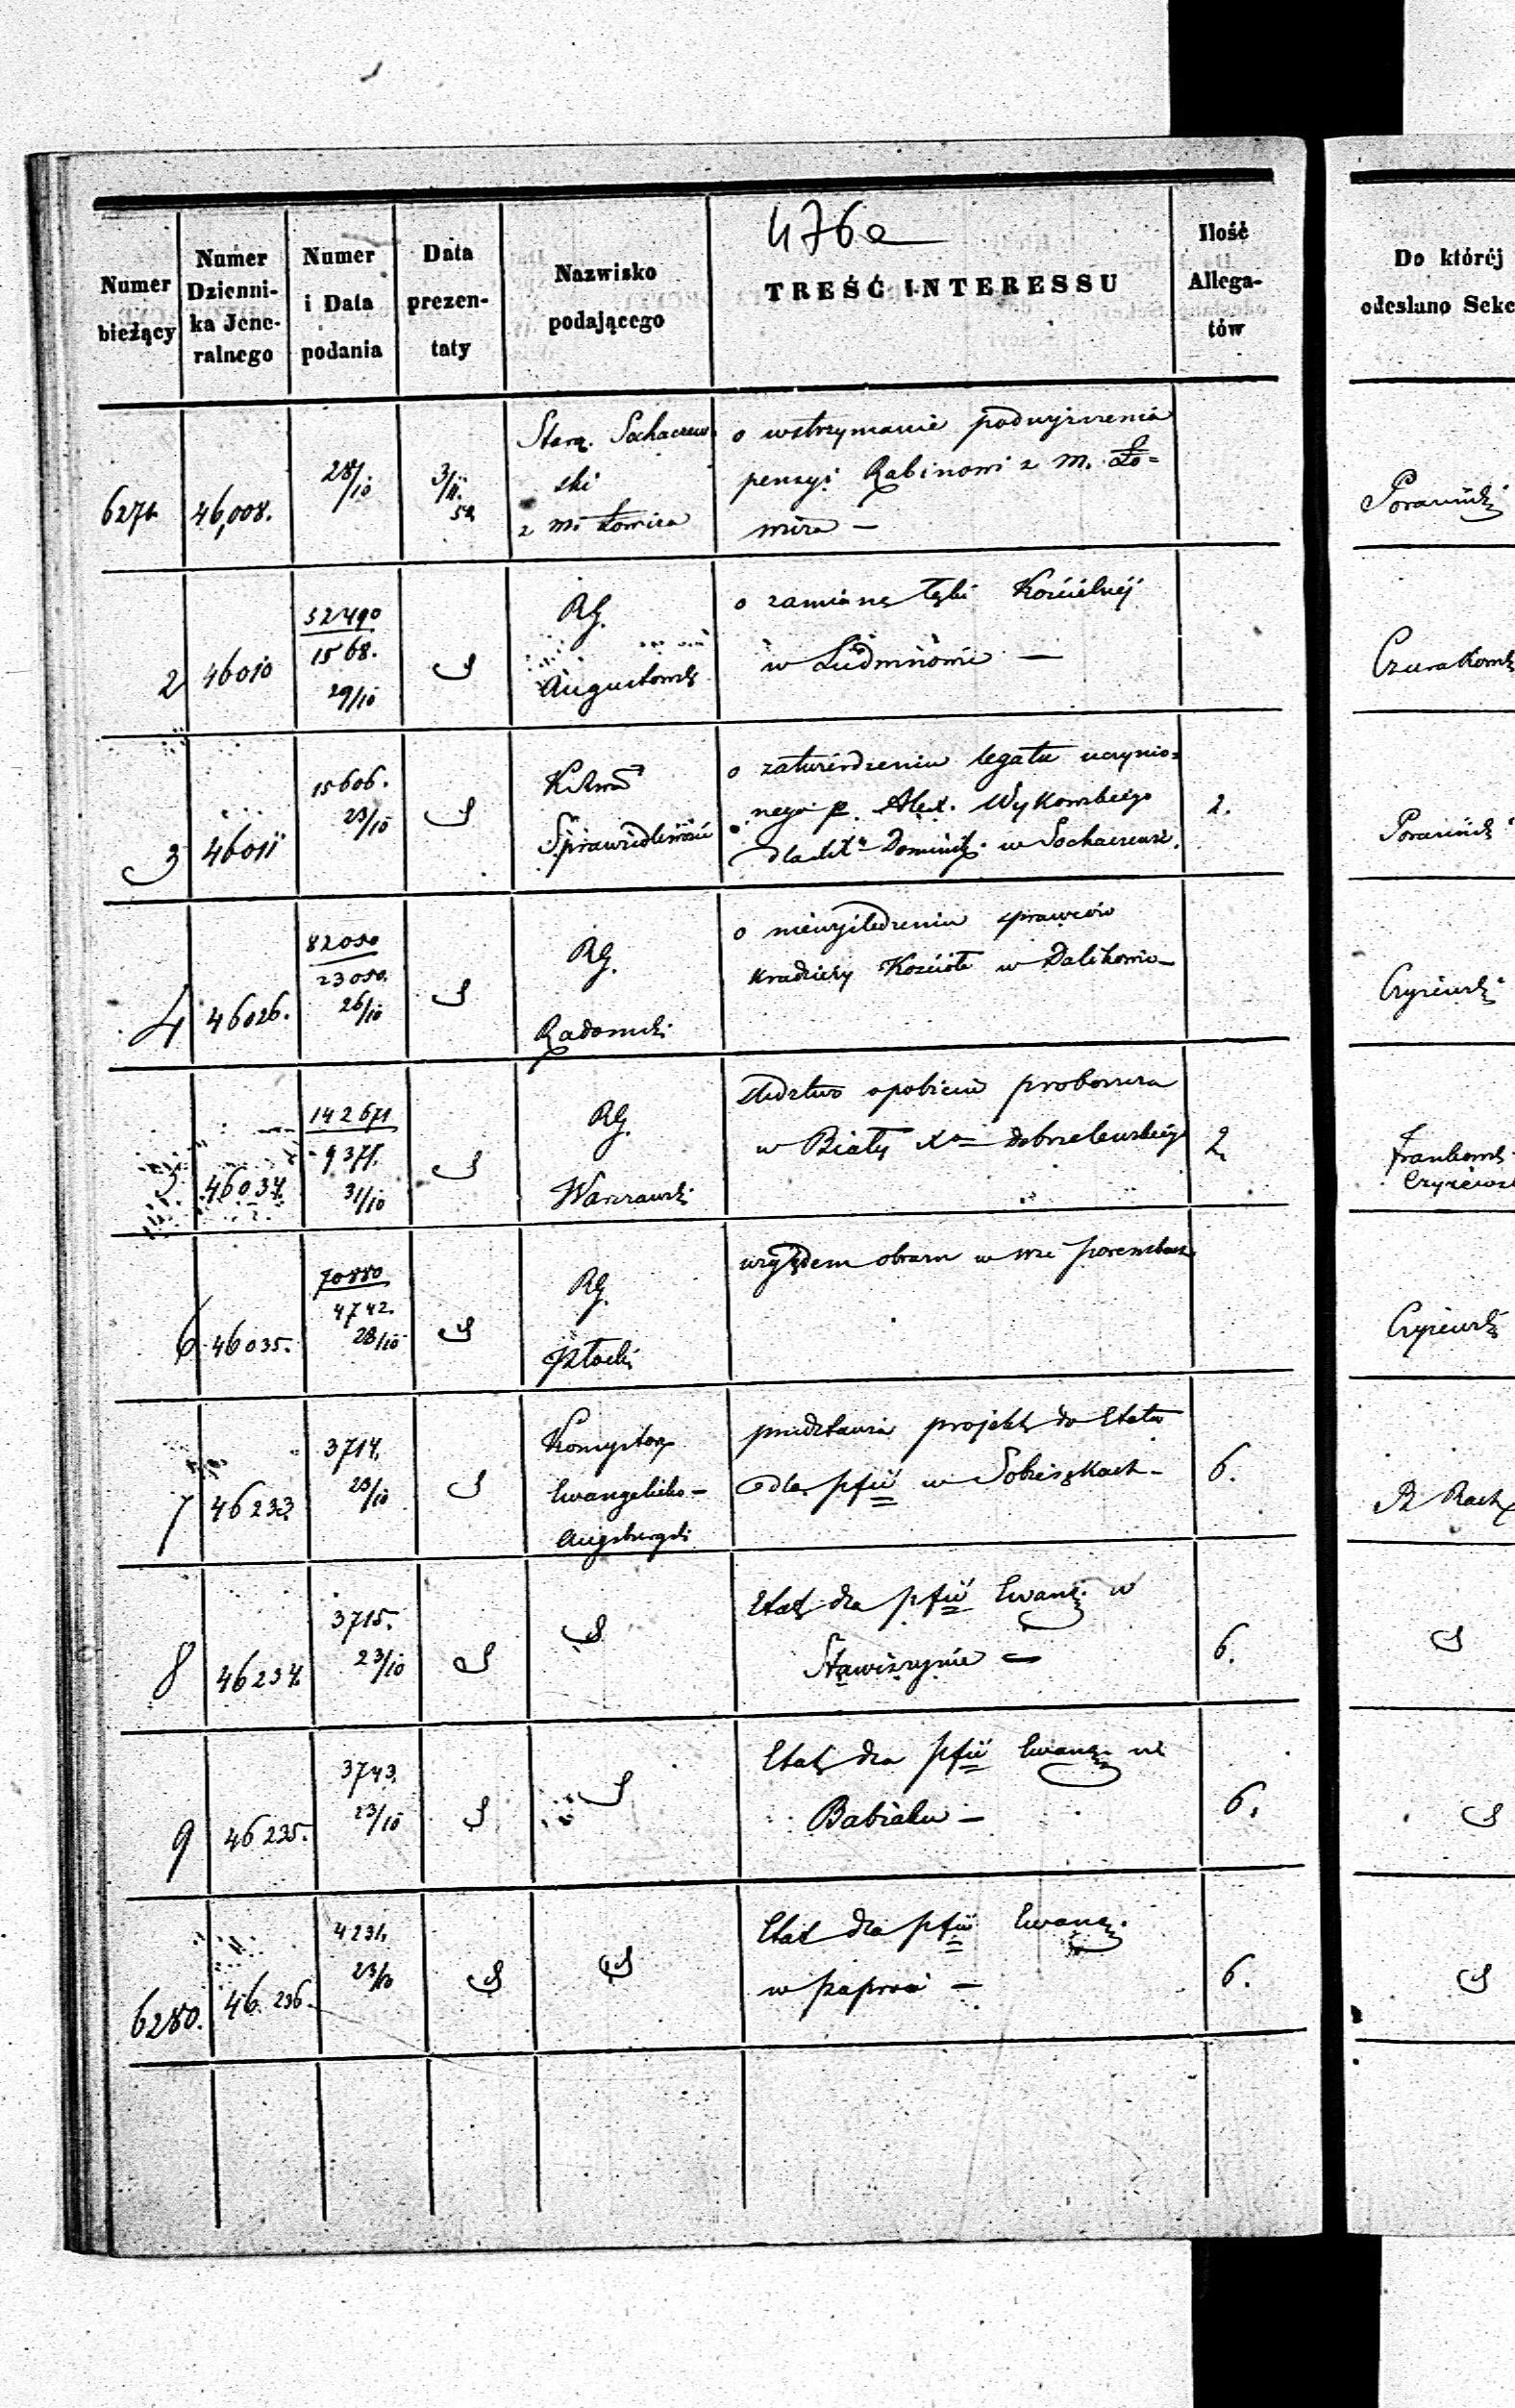 476a
Numer bieżący
Numer Dzienni-ka Jene-ralnego
Numer i Data podania
Data prezen-taty
Nazwisko podającego
TREŚĆ INTERESSU
Ilość Allega-tów
Do któréj
odesłano Sekc
6271 46,008. 28/10 3/11. 52
Staroz. Sochaczew
ski
z m. Łowicza
o wstrzymanie podwyższenia
pensyi Rabinowi z m. Ło=
wicza —
2 46010 52490 1568. 29/10
RG.
Augustowski
o zamianę łąki Kościelnéj
w Ludwinowie —
3 46011 15606. 23/10
Sprawiedliwości
o zatwierdzeniu legatu uczynio=
nego p. Alex. Wykowskiego
dla Dominik. w Sochaczewie. 2.
4 46026. 82050 23050. 26/10
RG.
Radomski
o niewyśledzeniu sprawców
kradzieży Kościoła w Dalikowie —
Czyżewski
5 46034. 142671 9371. 31/10
RG.
Warszawski
śledztwo o pobiciu proboszcza
w Biały Xa Dobrzelewskiego 2
6 46035. 70880 4742. 28/10
RG.
Płocki
względem obrazu w
Czyżewski
7 46233. 3714. 23/10
Konsystorz
Ewangelicko-
Augsburgski
przedstawia projekt do Etatu
dla pfii w Sobieszkach — 6.
8 46234. 3715. 23/10
Etat dla pfii Ewang. w
Stawiszynie — 6.
9 46235. 3743. 23/10
Etat dla pfii Ewang. w
Babiaku — 6.
6280. 46.236. 4231. 23/10
Etat dla pfii Ewang.
w Paproci — 6.